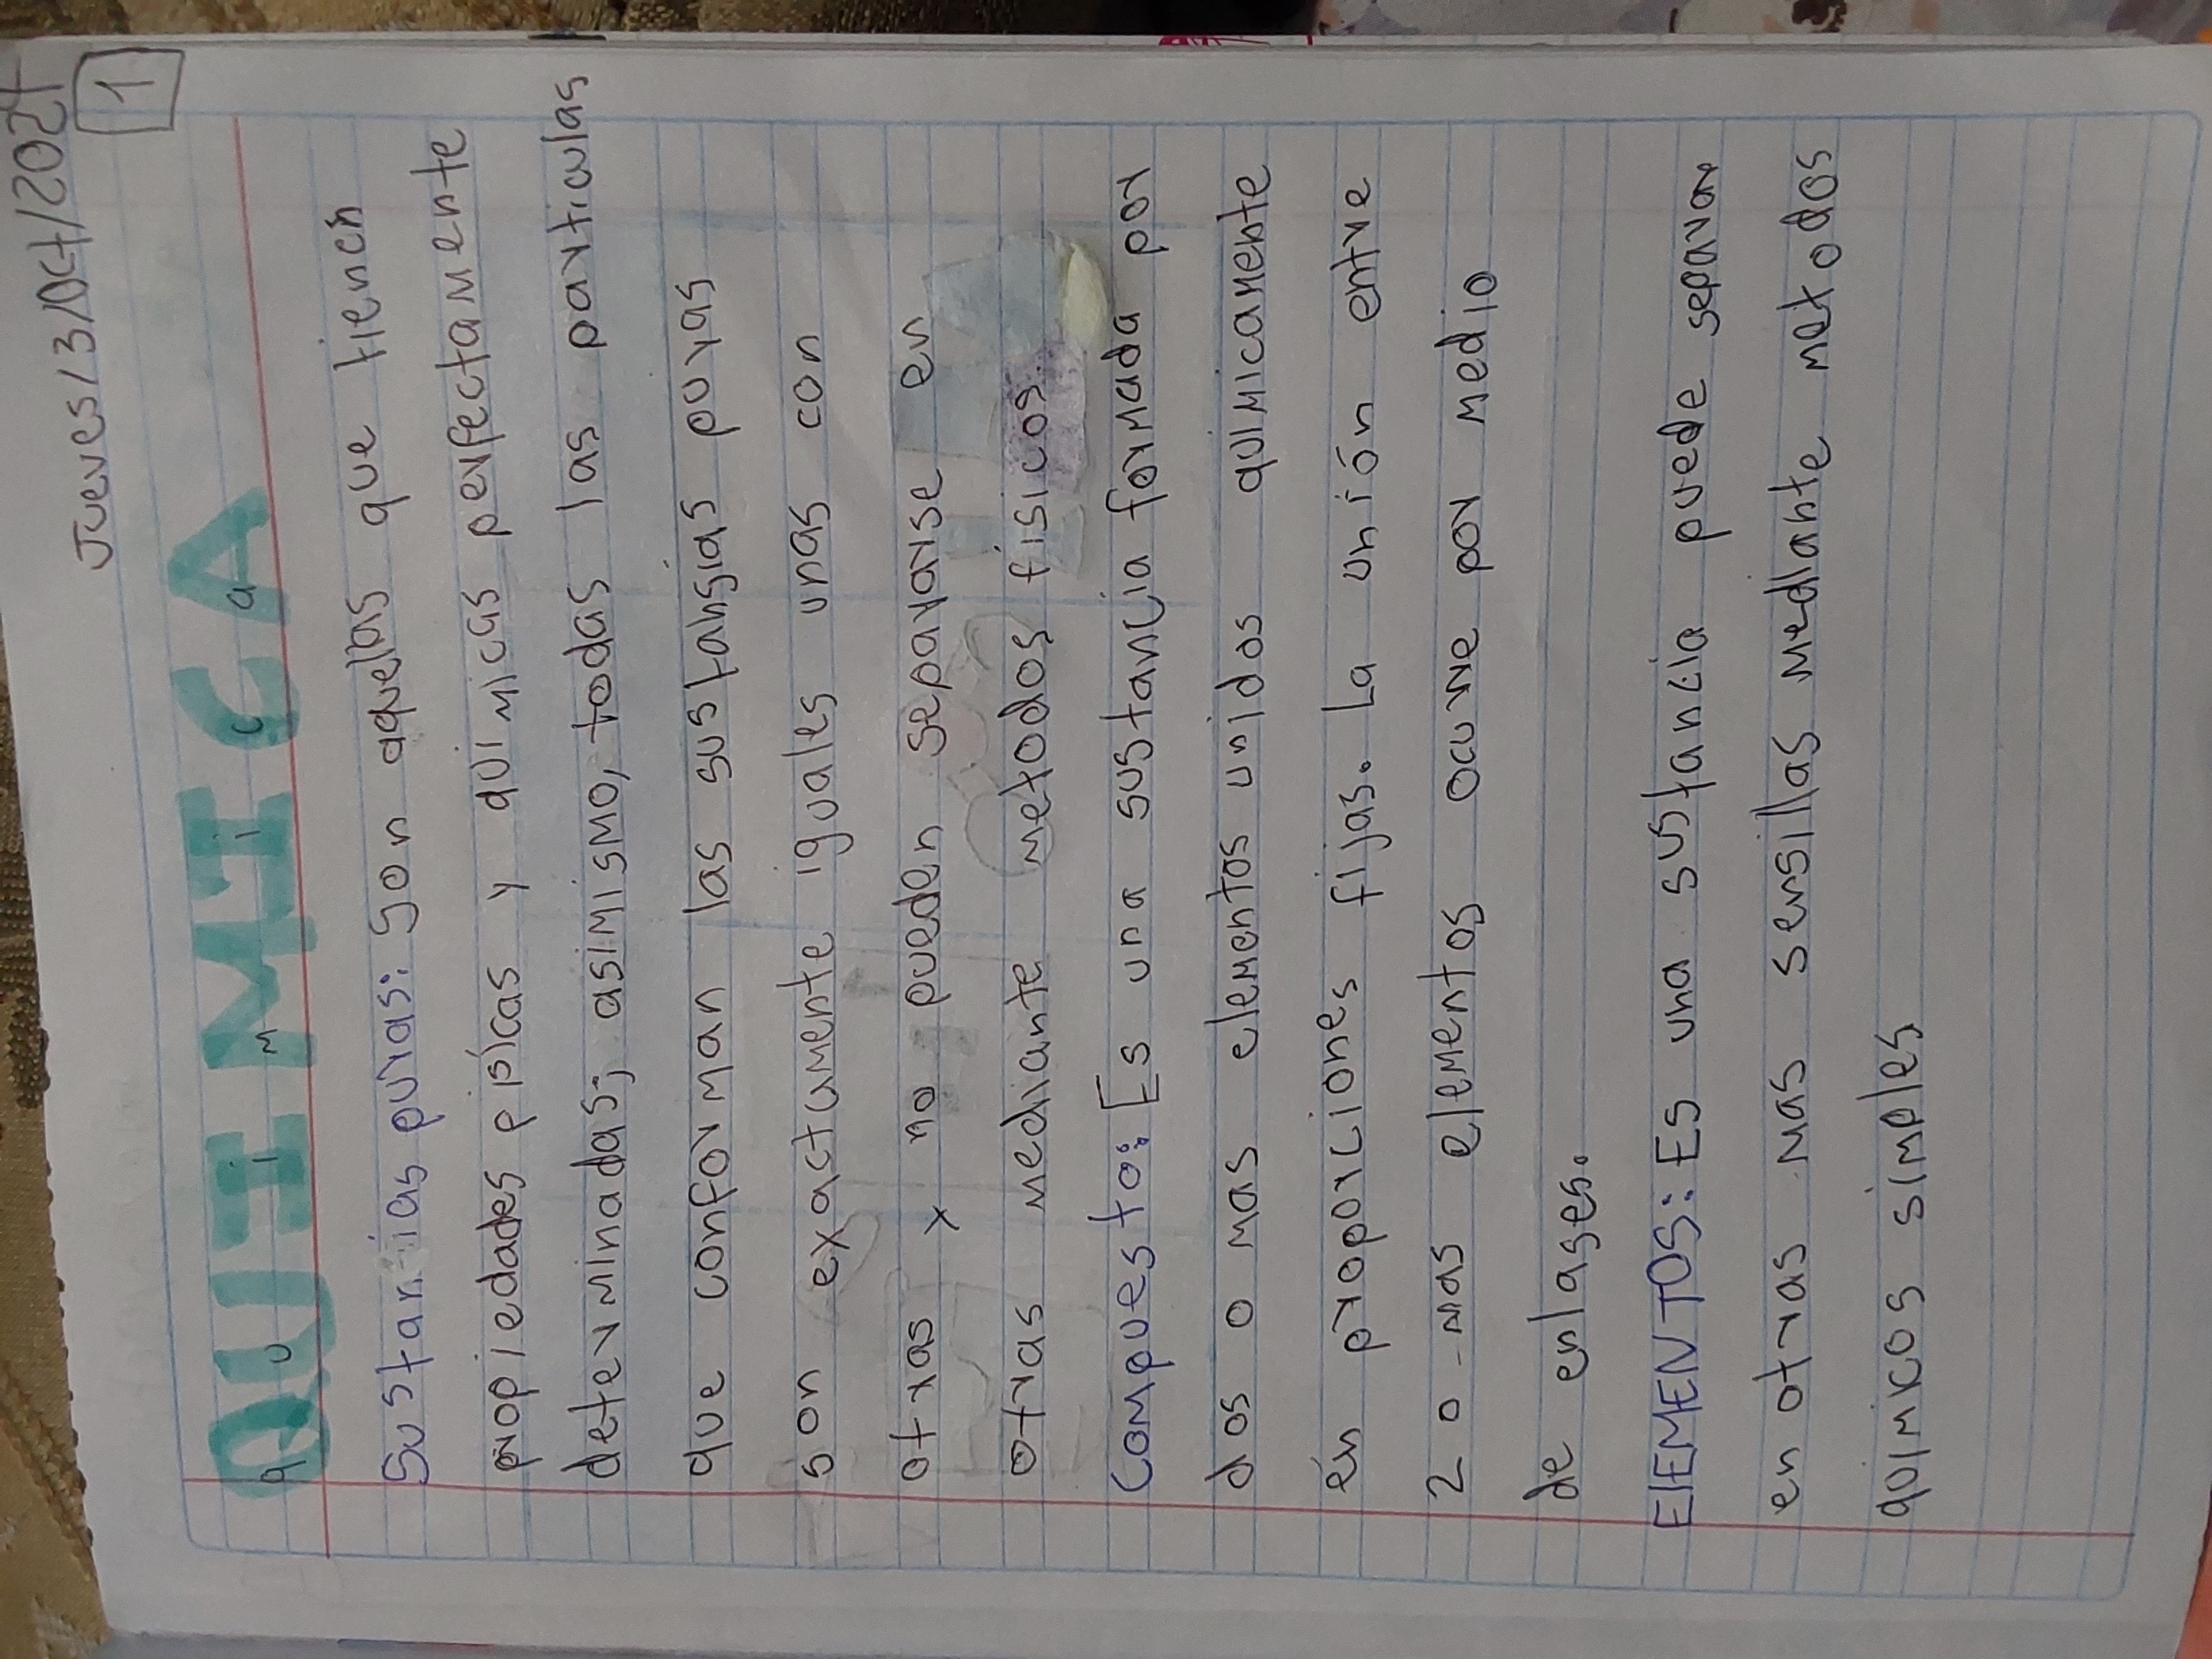 Jueves/3/Oct/2024
1
QUIMICA
quimica
Sustancias puras: Son aquellas que tienen
propiedades písicas y quimicas perfectamente
determinadas; asimismo, todas las particulas
que conforman las sustansias puras
son exactamente iguales unas con
otras x no pueden separarse en
otras mediante metodos fisicos.
Compuesto: Es una sustancia formada por
dos o mas elementos unidos quimicamente
en proporciones fijas. La unión entre
2 o mas elementos ocurre por medio
de enlases.
ElEMENTOS: Es una sustancia puede separar
en otras mas sensillas mediante metodos
quimicos simples